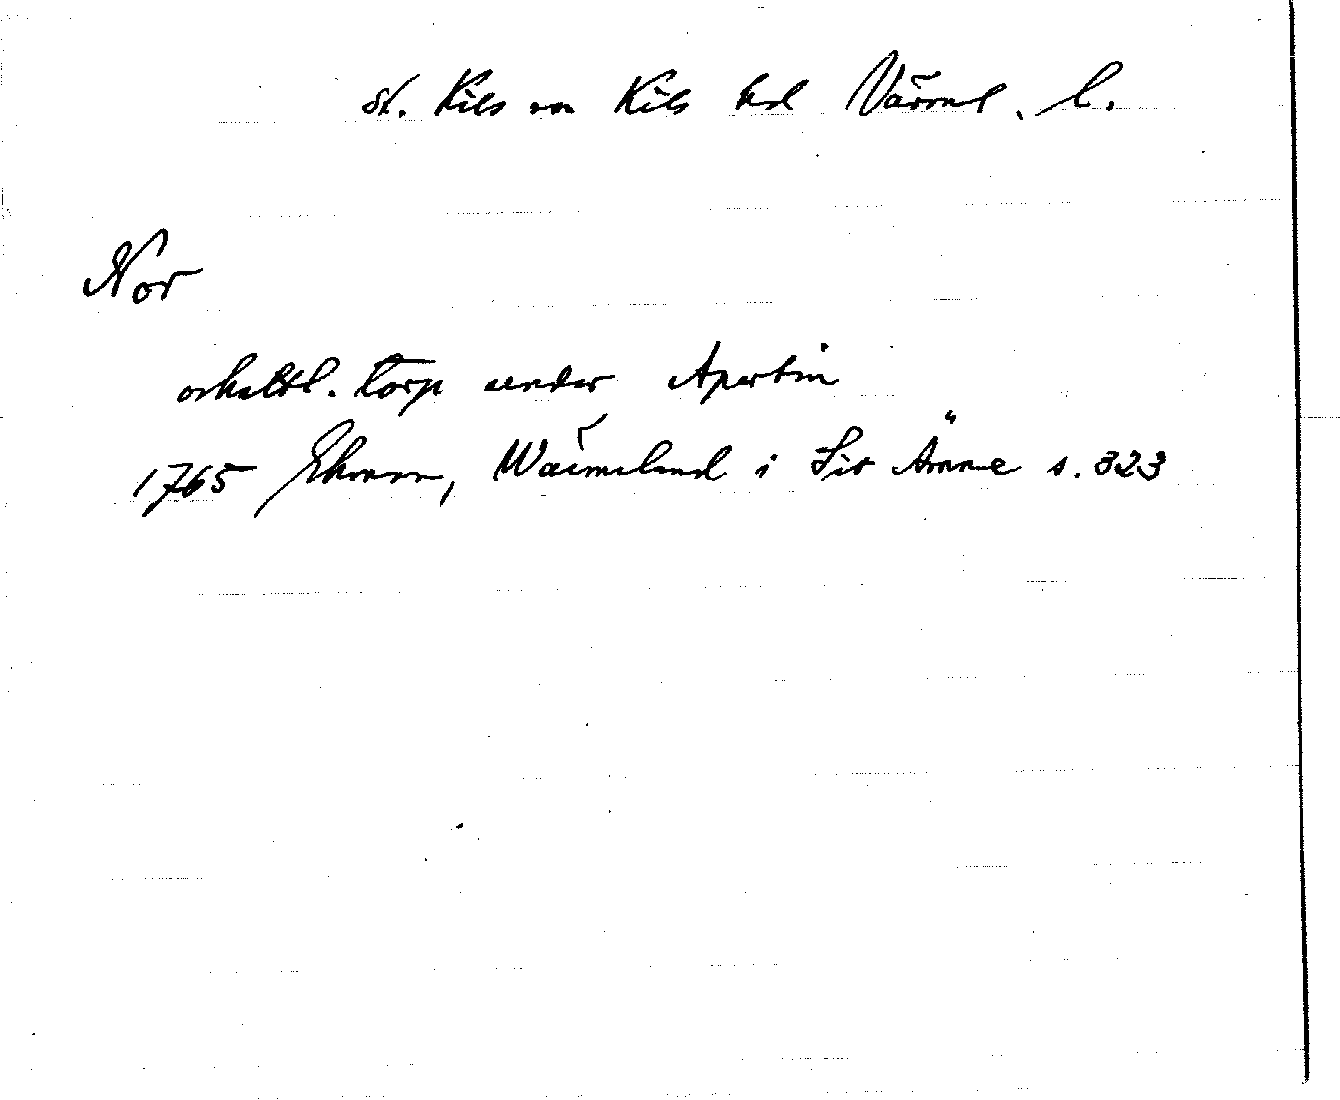 st. Kils sn Kils hd Värml. l.
Nor
oskattl. torp under Apertin
1765 Ekman, Wärmeland i Sit Ämne s. 323